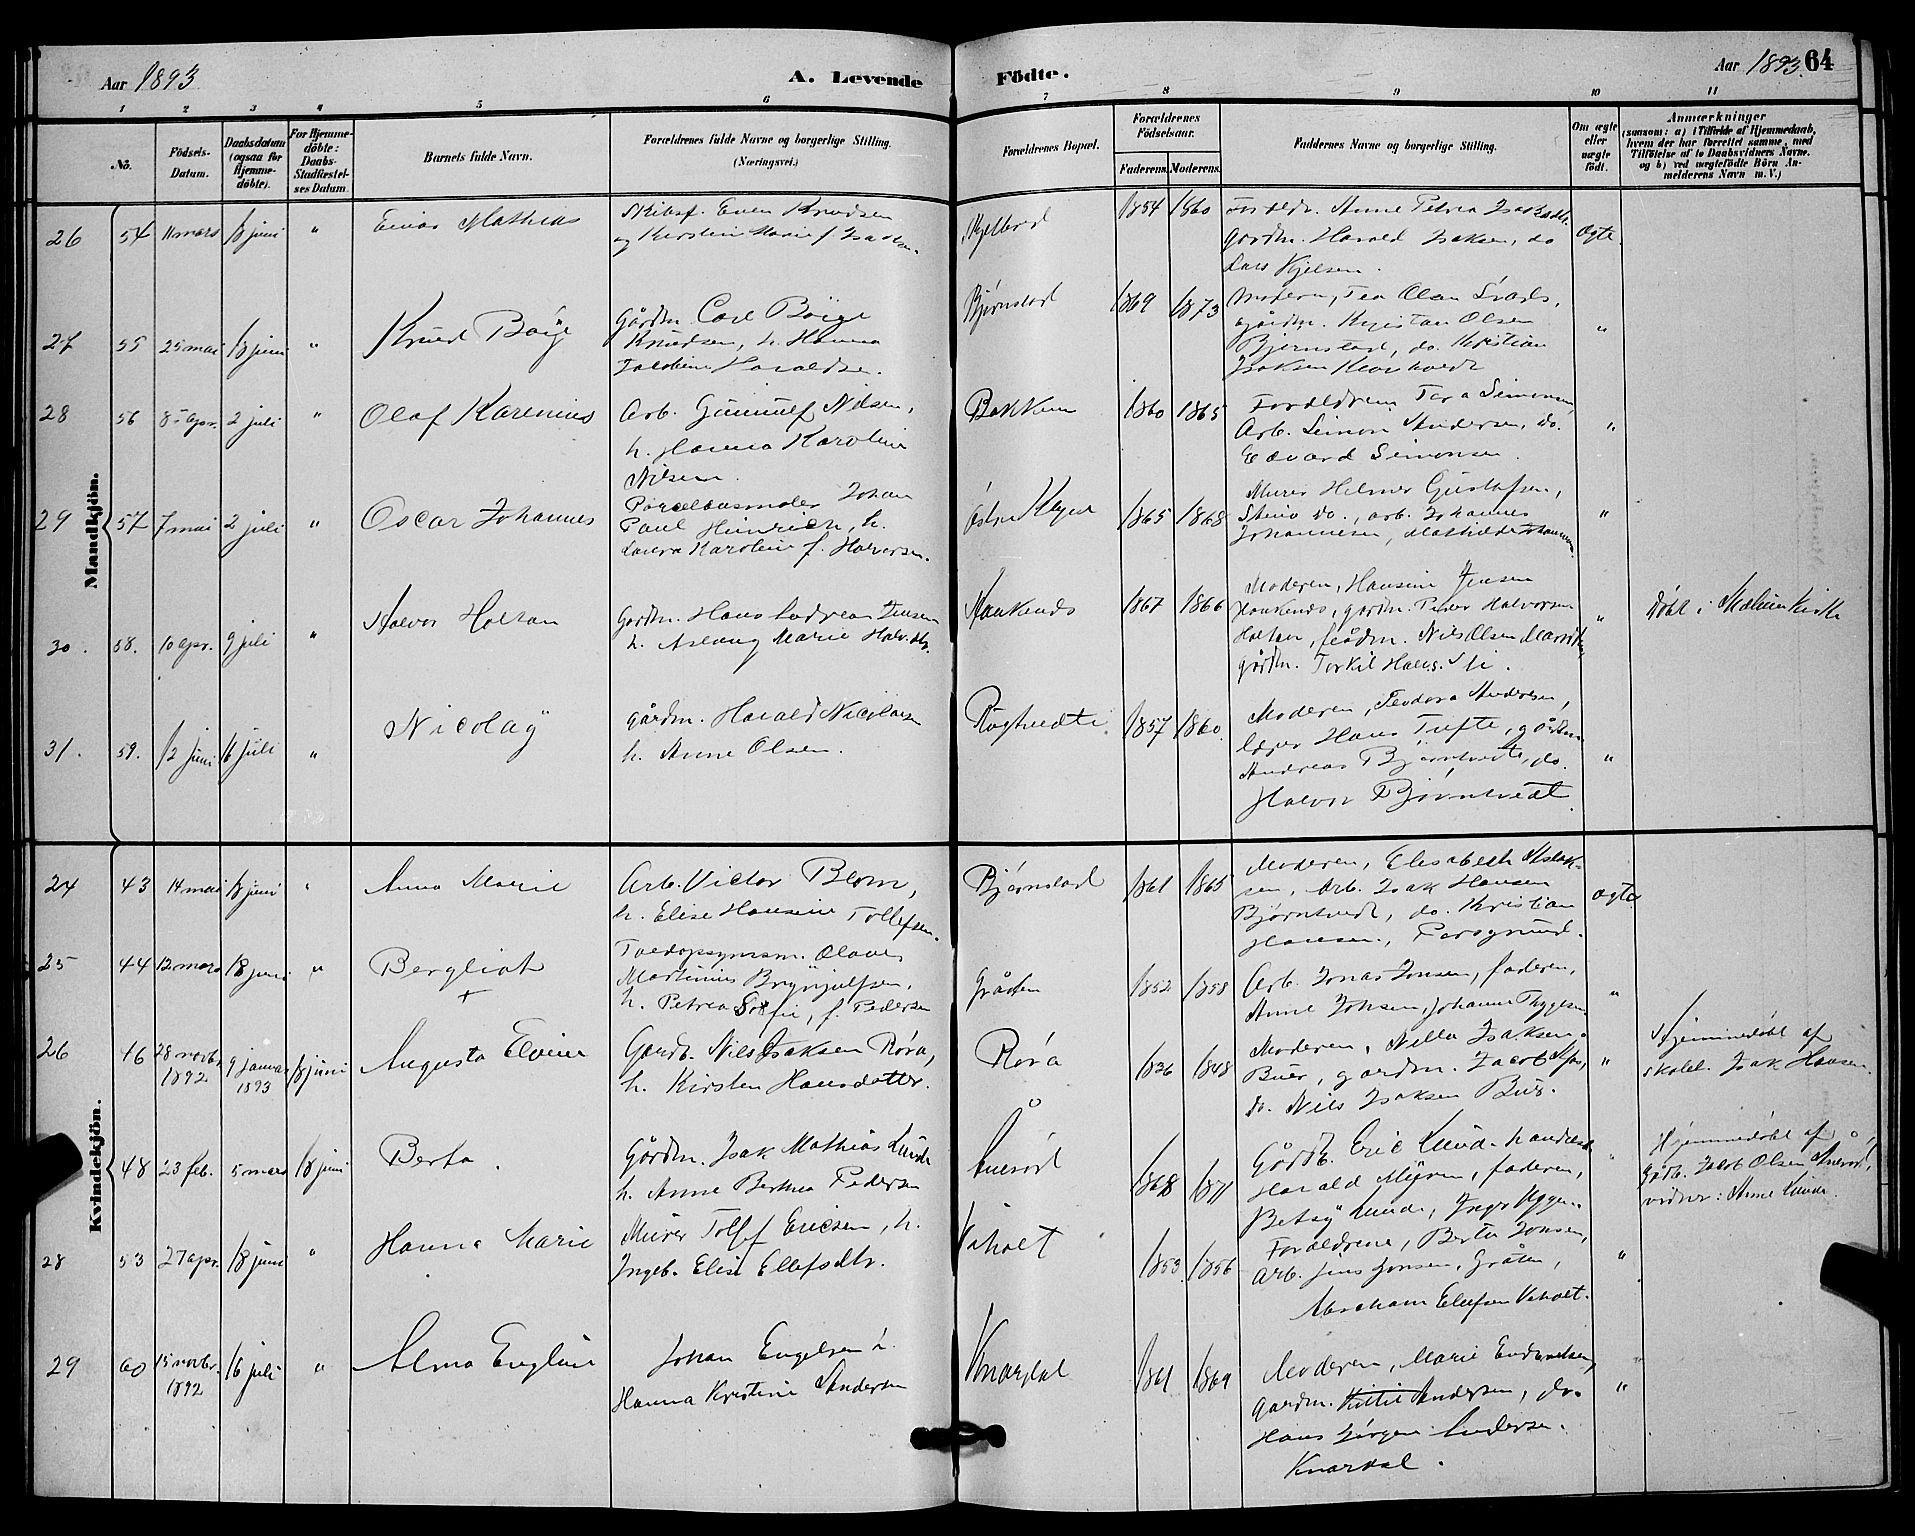 Aar 1893
A. Levende
Födte.
Aar 1893. 64
1 2 3 4 5 6 7 8 9 10 11
No.
Födsels-
Datum.
Daabsdatum
(ogsaa for
Hjemme-
döbte).
For Hjemme-
döbte:
Daabs-
Stadfæstel-
ses Datum.
Barnets fulde Navn.
Forældrenes fulde Navne og borgerlige Stilling.
(Næringsvei.)
Forældrenes Bopæl.
Forældrenes
Födselsaar.
Faderens. Moderens.
Faddernes Navne og borgerlige Stilling.
Om ægte
eller
uægte
födt.
Anmærkninger
(saasom: a) i Tilfælde af Hjemmedaab,
hvem der har forrettet samme, med
Tilföielse af to Daabsvidners Navne.
og b) ved uægtefödte Börn An-
melderens Navn m.V.)
Mandkjön.
26 54 11 mars 18 juni " Einar Mathias
Skibsf. Even Knudsen
og Kirsten Marie f. Isaksen.
1854 1860
Foreldr. Anne Petrea Isaksdtr.
gardm. Harald Isaksen, do
Lars Kjelsen.
Ægte.
27 55 25 mai 18 juni " Knud Böıge
Gårdm. Carl Böıge
Knudsen, h. Hanna
Jacobine Haraldse.
Bjørnstad 1869 1873
Moderen, Tea Olea
gårdm. Kristian Olsen
Bjørnstad, do. Kristian
Isaksen
"
28 56 8 apr. 2 juli " Olaf Karenius
Arb. Gunnulf Nilsen,
h. Hanna Karoline
Nilsen.
Bakken 1860 1865
Foreldrene Tara Simonsen,
Arb. Simon Andersen, do.
Edvard Simonsen.
"
29 57 7 mai 2 juli " Oscar Johannes
Porcellænsmaler Johan
Paul Heinrich, h.
Laura Karoline f. Halvorsen.
1865 1868
Murer Helmer Gustafsen,
do., arb. Johannes
Johannesen, Mathilde Johannesen
"
30. 58. 10 apr. 9 juli " Halvor Holtan
Gardm. Hans Andreas Jensen
h. Aslaug Marie Halv.dtr.
Haukenes 1867 1866
Moderen, Hansine Jensen
Haukenes, gardm. Peder Halvorsen
Holtan, Gårdm. Nils Olsen
gårdm. Torkil Hans. Sti.
"
Døbt i Mælum Kirke
31. 59. 12 juni 16 juli " Nicolaÿ
gårdm. Harald Nicolaisen
h. Anne Olsen.
Rugtvedt. 1857 1860.
Moderen, Teodora Andersen,
Hans Tufte, gårdm.
Andreas Bjørntvedt, do.
Halvor Bjørntvedt.
"
Kvindekjön.
24 43 14 mai 18 juni " Anna Marie
Arb. Victor Blom,
h. Elise Hansine Tollefsen.
Bjørnstad 1861 1865
Moderen, Elisabeth Aslak-
sen, Arb. Isak Hansen
Bjørntvedt, do. Kristian
Hansen, Porsgrund.
ægte.
25 44 12 mars 18 juni " Bergliot
+
Toldopsynsm. Olaves
Martinius Brynjulfsen,
h. Petrea Sofie, f. Pedersen
Gråten 1852 1858
Arb. Jonas Jonsen, faderen,
Anne Johsen, Johanne Thygesen
"
26 46 28 novb. 1892 9 januar 1893 18 juni Augusta Elvine
Gardb. Nils Isaksen Røra,
h. Kirsten Hansdatter.
Røra 1836 1848
Moderen, Nilla Isaksen
Buer, gardm. Jacob
do. Nils Isaksen Buer.
"
Hjemmedøbt af
skolel. Isak Hansen.
48 23 feb. 5 mars 18 juni Berta.
Gårdm. Isak Mathias Lunde
h. Anne Berthea Pedersen
Åuerød 1868 1871
Gårdb. Eric Lund. handelsm.
Harald Myren, faderen,
Betsÿ Lunde, Inger
"
Hjemmedøbt af
Gårb. Jacob Olsen Åuerød,
vidner: Anne Lunde.
28 53 27 apr. 18 juni " Hanna Marie
Murer Tollef Ericsen, h.
Ingeb. Elise Ellefsdtr.
Vaholt 1853. 1856
Foreldrene, Berte Jonsen,
Arb. Jens Jonsen, Gråten,
Abraham Elefsen Vaholt.
"
29 60 15 novbr. 1892 16 juli " Alma Engline
Johan Engelsen h.
Hanna Kristine Andersen
Knardal 1861 1869
Moderen, Marie
gardm. Andersen, do.
Hans Jørgen Andersen.
Knardal.
"